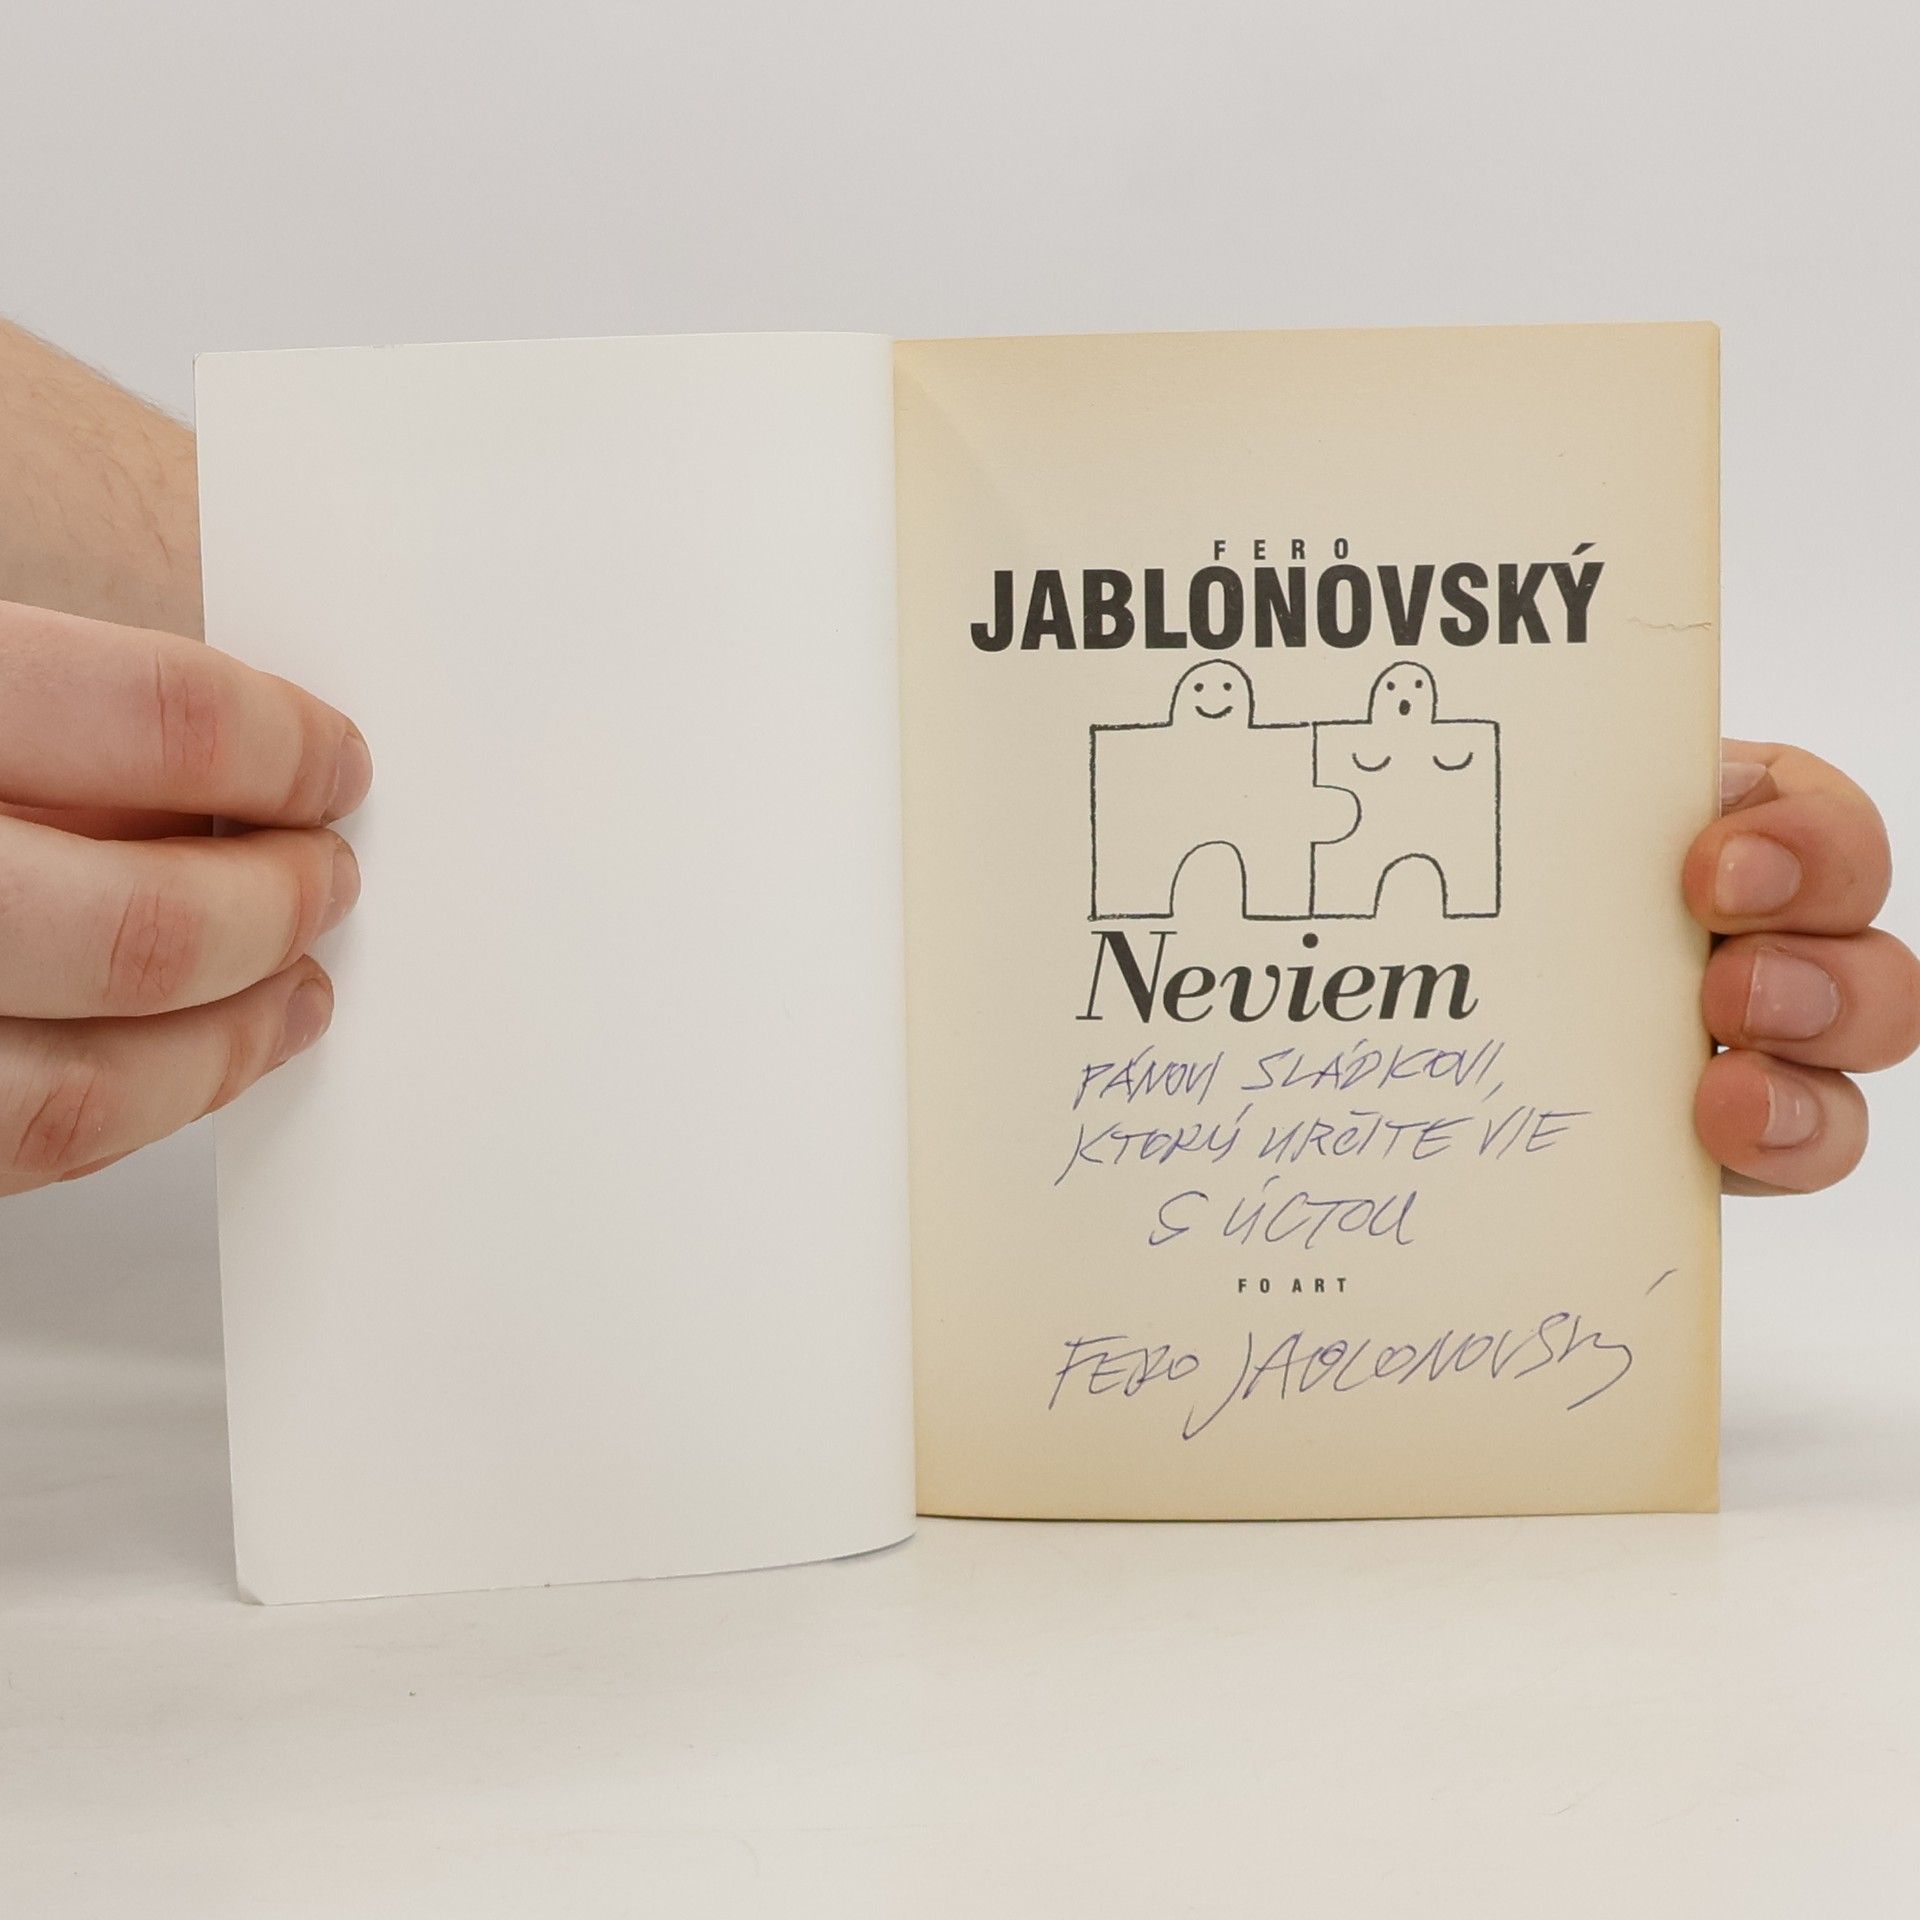 FERO
JABLONOVSKÝ
Neviem
PÁNOVI SLÁDKOVI,
KTORÝ URČITE VIE
S ÚCTOU
FO ART
FERO JABLONOVSKÝ